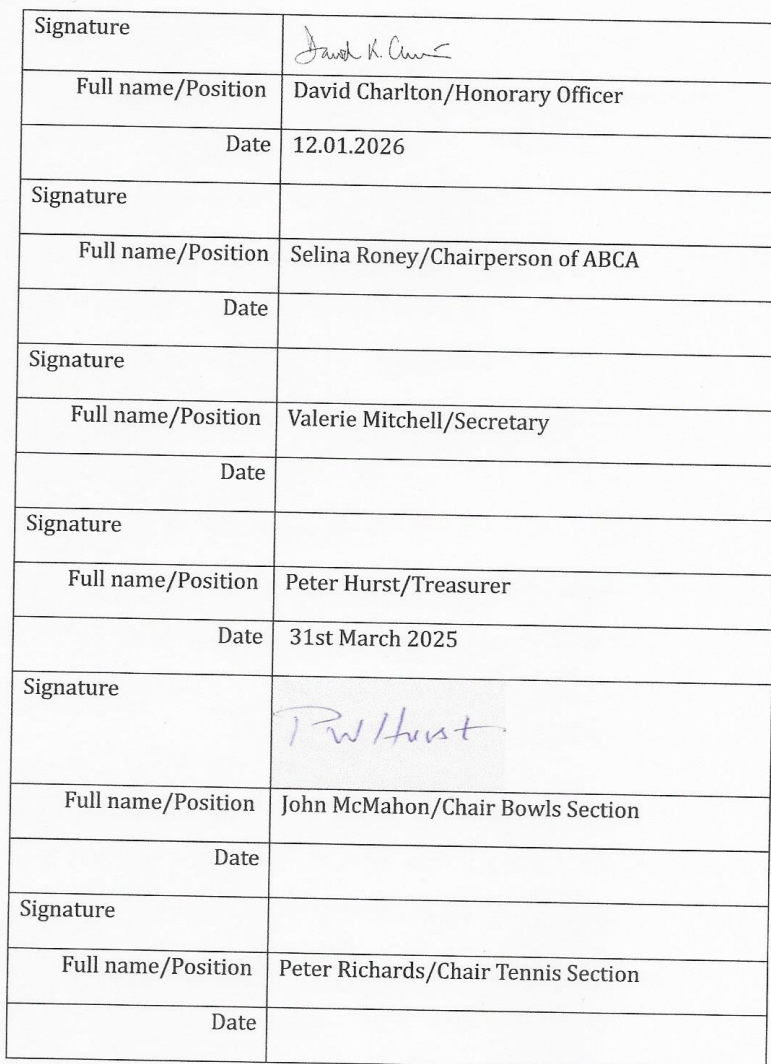 Signature David K. 
Full name/Position David Charlton/Honorary Officer
Date 12.01.2026
Signature
Full name/Position Selina Roney/Chairperson of ABCA
Date
Signature
Full name/Position Valerie Mitchell/Secretary
Date
Signature
Full name/Position Peter Hurst/Treasurer
Date 31st March 2025
Signature PW Hurst
Full name/Position John McMahon/Chair Bowls Section
Date
Signature
Full name/Position Peter Richards/Chair Tennis Section
Date